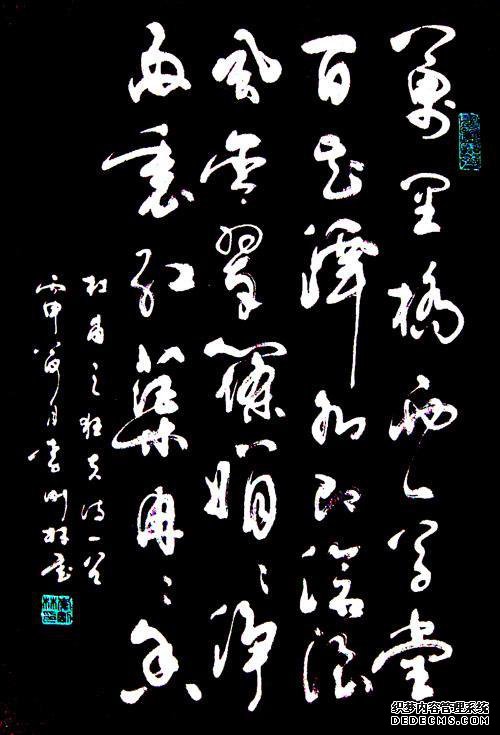 萬里橋西一草堂
百花潭水即滄浪
風含翠篠娟々淨
雨裛紅蕖冉々香
杜甫之狂夫诗一首
丙申荷月
织梦内容管理系统
DEDECMS.COM